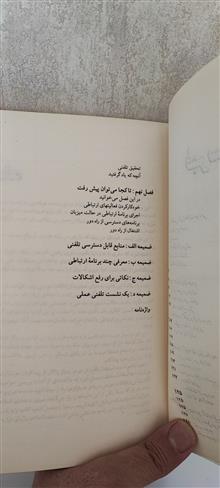 تحقیق تلفنی
آنچه که یاد گرفتید
فصل نهم : تا کجا می‌توان پیش رفت
در این فصل می‌خوانید
خودکار کردن فعالیتهای ارتباطی
اجرای برنامهٔ ارتباطی در حالت میزبان
برنامه‌های دسترسی از راه دور
اشتغال از راه دور
ضمیمه الف : منابع قابل دسترسی تلفنی
ضمیمه ب : معرفی چند برنامهٔ ارتباطی
ضمیمه ج : نکاتی برای رفع اشکالات
ضمیمه د : یک نشست تلفنی عملی
واژه‌نامه